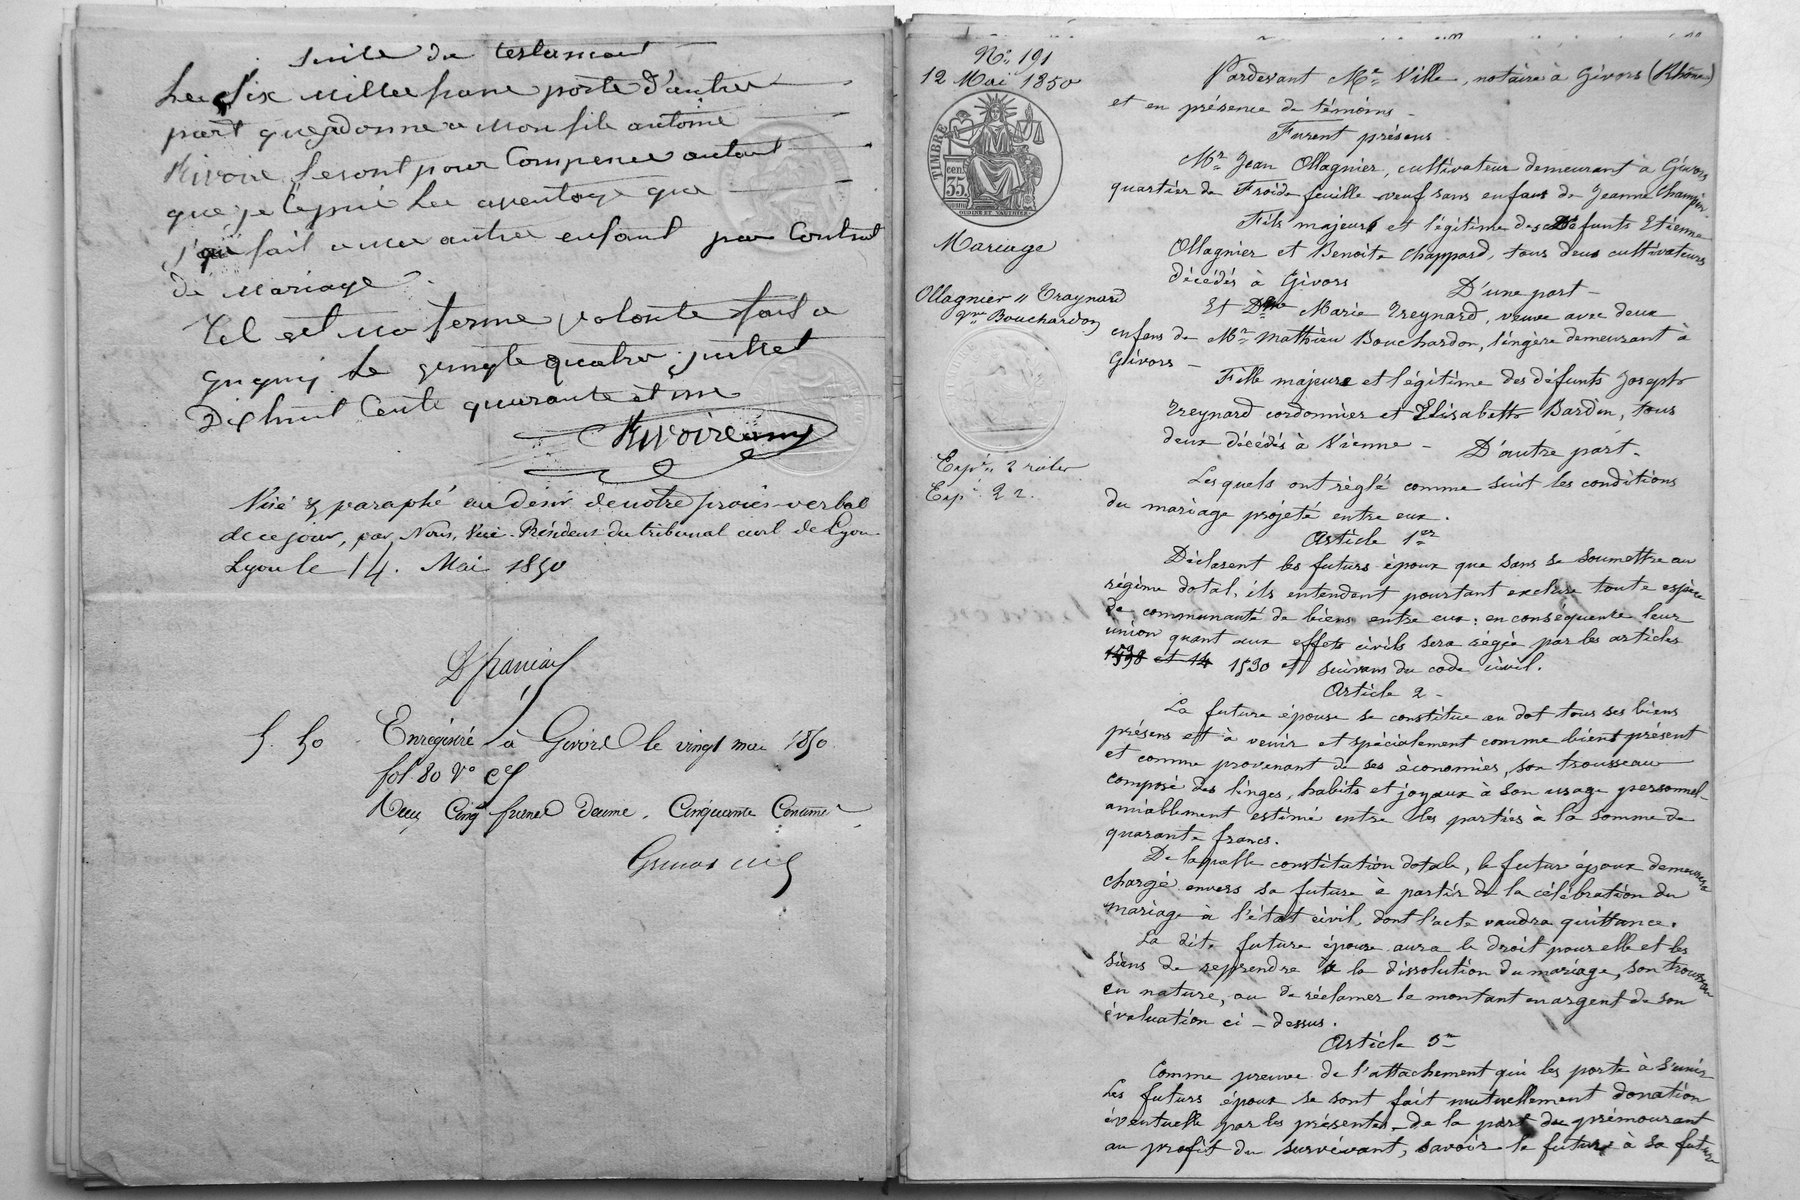 suite du testament
Les Six mille franc porté d'autre
part que je donne a mon fils antoine
Rivoire Seront pour Compencé autant
que je l'ai pu les aventage que
j'ai fait a mes autres enfant par Contrat
de mariage
Tel est ma ferme volonté fait a
Grigny le vingte quatre juillet
Dix huit Cente quarante et un
Rivoire
Visé & paraphé au désir de notre procès-verbal
de ce jour, par Nous, Vice-Président du tribunal civil de Lyon
Lyon le 14. Mai 1850
5. 50 Enregistré à Givors le vingt mai 1850
fol. 80 Vo
Reçu Cinq francs Décime Cinquante Centimes
No 191
12 Mai 1850
TIMBRE
35 cen
Mariage
Ollagnier & Traynard
Vve Bouchardon
Expn 2 roles
Exp. 2 2.
Pardevant Me Ville, notaire à Givors (Rhône)
et en présence de témoins
Furent présens
Mr Jean Ollagnier, cultivateur demeurant à Givors
quartier de Froide feuille veuf sans enfans de Jeanne Champin
Fils majeur et légitime des défunts Etienne
Ollagnier et Benoite Chappard, tous deux cultivateurs
décédés à Givors D'une part -
Et Dme Marie Treynard, veuve avec deux
enfans de Mr Mathieu Bouchardon, lingère demeurant à
Givors -
Fille majeure et légitime des défunts Joseph
Treynard cordonnier et Elisabeth Bardin, tous
deux décédés à Vienne - D'autre part -
Lesquels ont réglé comme suit les conditions
du mariage projeté entre eux.
Article 1er
Déclarent les futurs époux que sans se soumettre au
régime dotal, ils entendent pourtant exclure toute espèce
de communauté de biens entre eux; en conséquence leur
union quant aux effets civils sera régie par les articles
et 14 1530 et suivans du code civil.
Article 2 -
La future épouse se constitue en dot tous ses biens
présens et à venir et spécialement comme biens présent
et comme provenant de ses économies, son trousseau
composé des linges, habits et joyaux à son usage personnel
amiablement estimé entre les parties à la somme de
quarante francs.
De laquelle constitution dotale, le futur époux demeurera
chargé envers sa future à partir de la célébration du
mariage à l'état civil dont l'acte vaudra quittance.
La dite future épouse aura le droit pour elle et les
siens de reprendre à la dissolution du mariage, son trousseau
en nature, ou de réclamer le montant en argent de son
évaluation ci-dessus.
Article 3
Comme preuve de l'attachement qui les porte à s'unir
Les futurs époux se sont fait mutuellement donation
éventuelle par les présentes, de la part du prémourant
au profit du survivant, savoir le futur à sa future